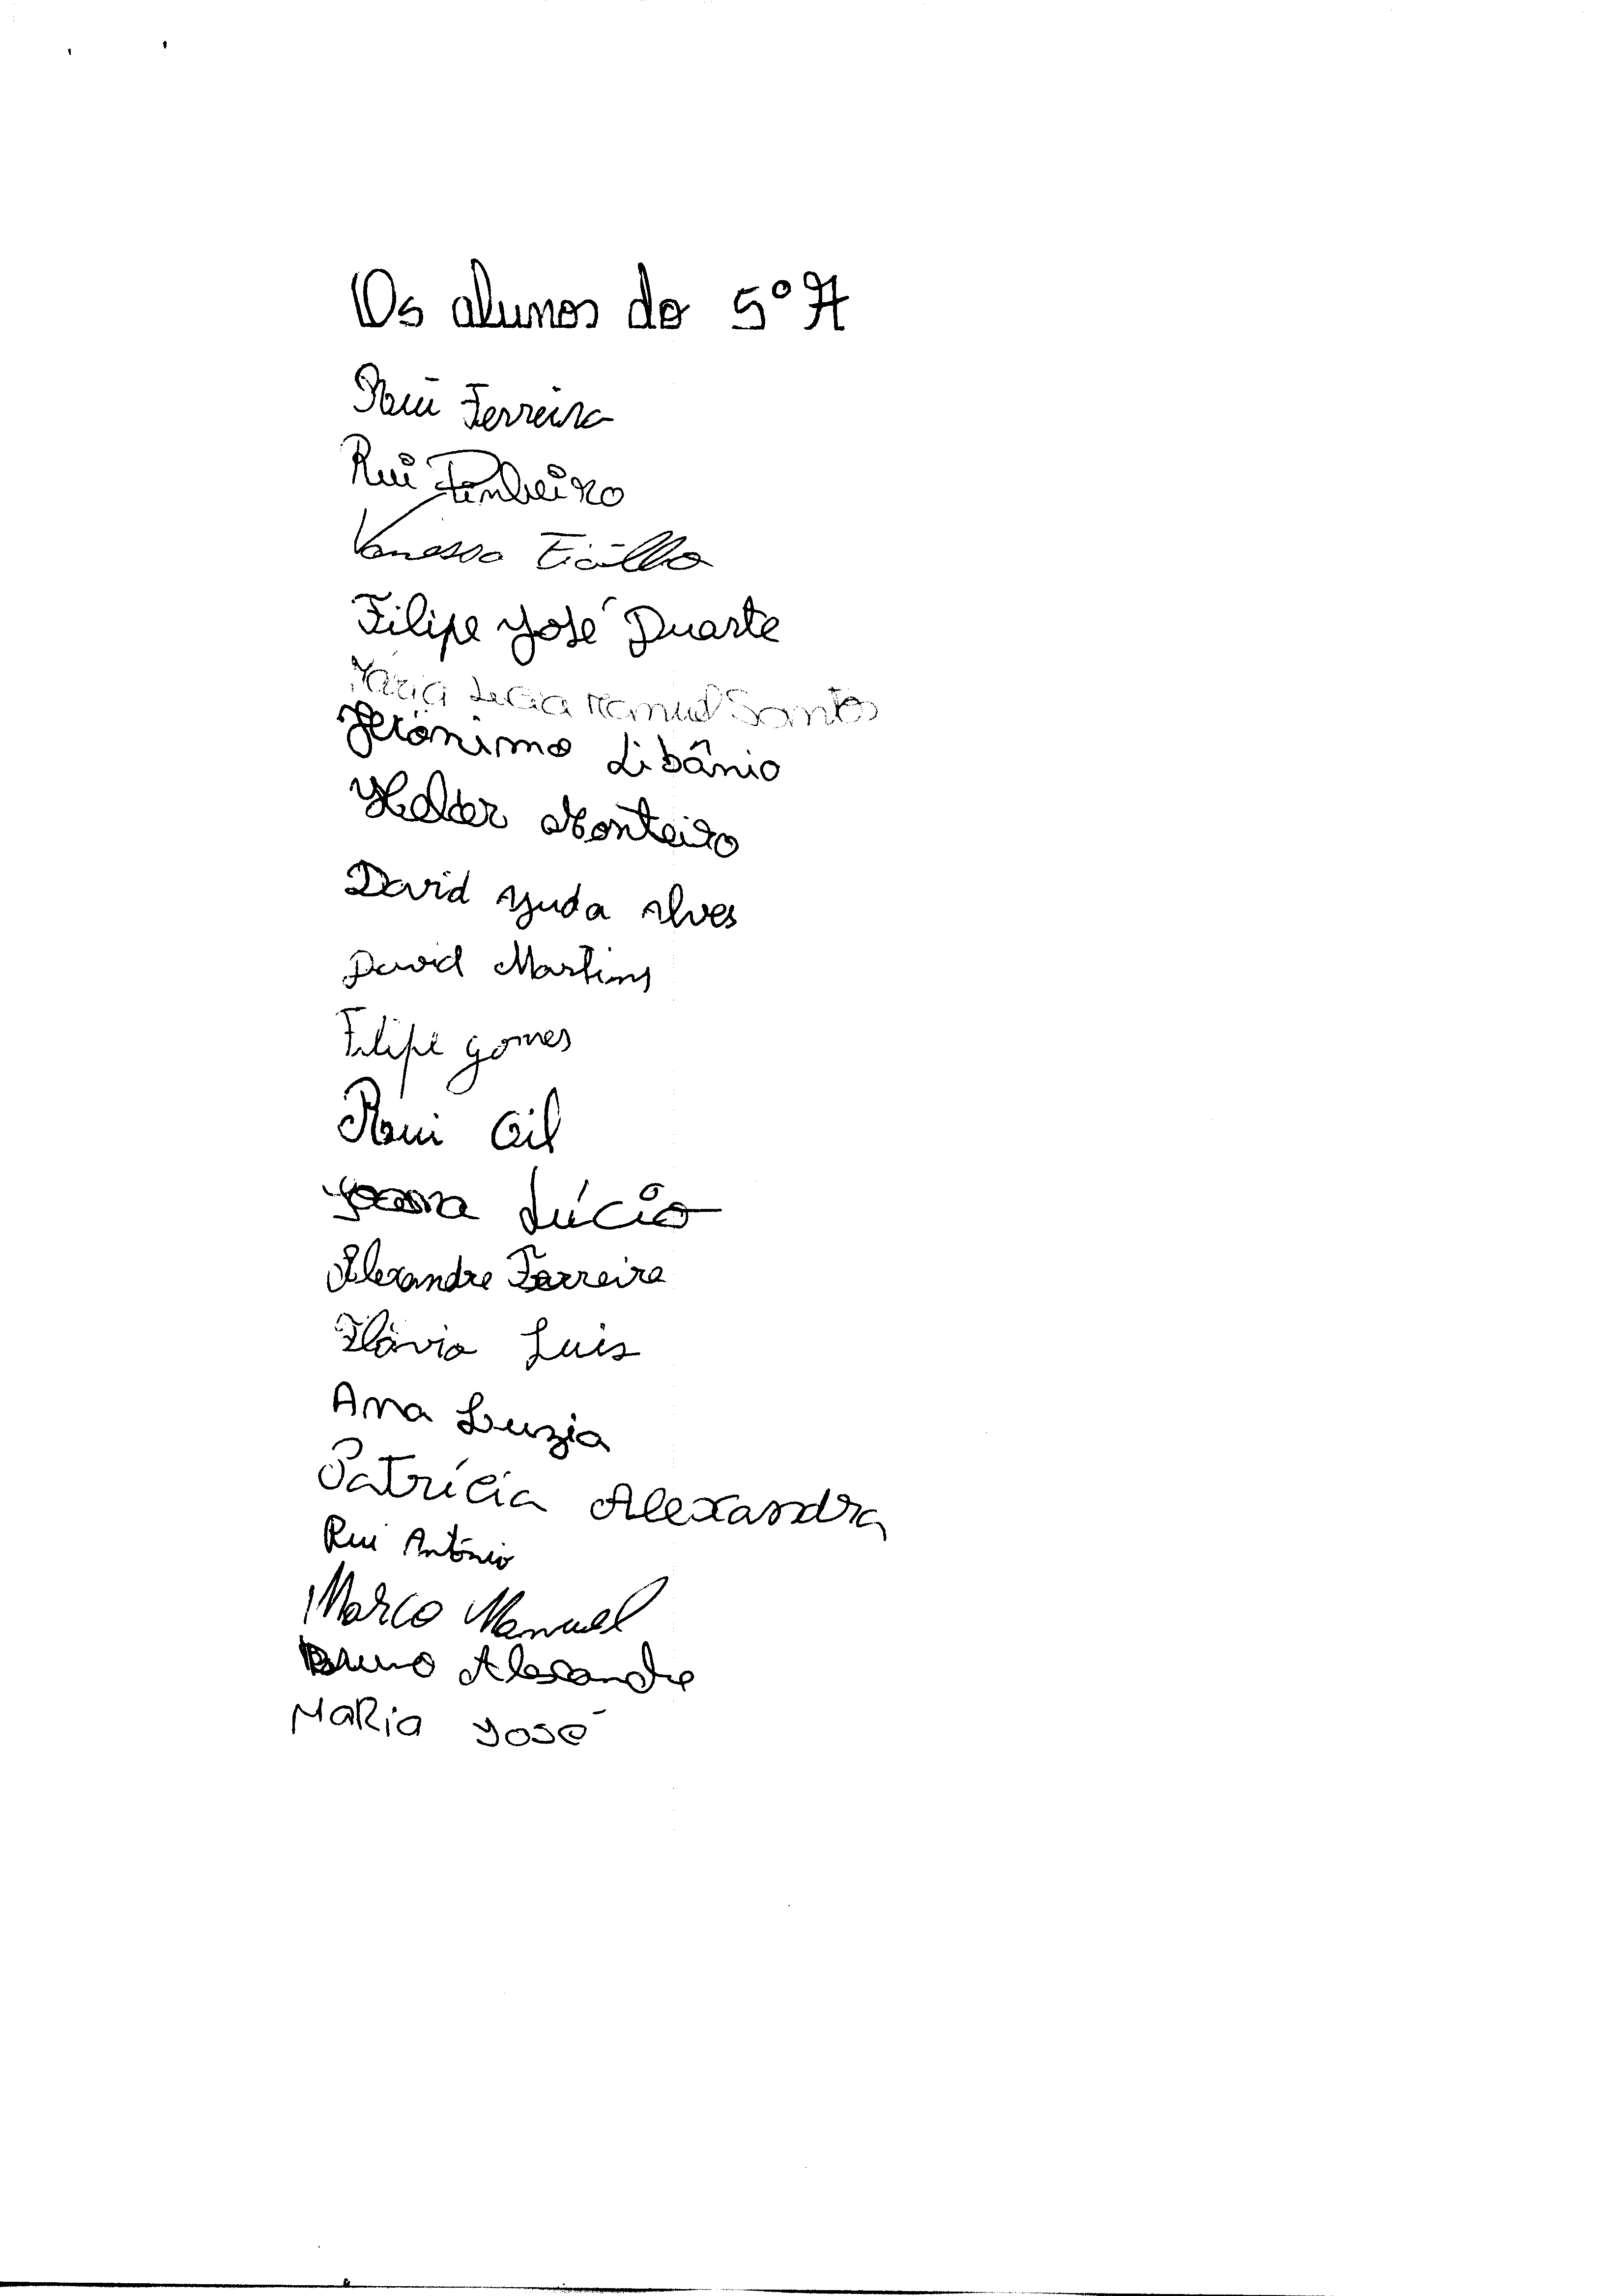 Os alunos do 5º A
Rui Ferreira
Rui Pinheiro
Vanessa Fialho
Filipe José Duarte
Maria Lúcia Manuel Santos
Jerónimo Libânio
Helder Monteiro
David Ajuda Alves
David Martins
Filipe gomes
Rui Gil
Joana Lúcio
Alexandre Ferreira
Flávio Luis
Ana Luzia
Patrícia Alexandra
Rui António
Marco Manuel
Bruno Alexandre
Maria José